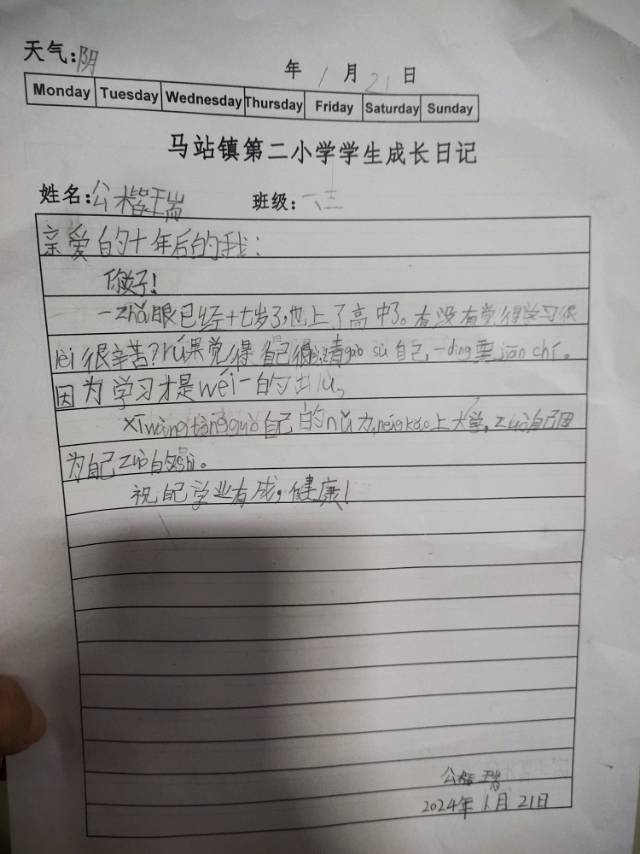 天气:阴
年1月21日
Monday Tuesday Wednesday Thursday Friday Saturday Sunday
马站镇第二小学学生成长日记
姓名:公楷瑞 班级:六三
亲爱的十年后的我:
你好!
一zhǎ眼已经十七岁了,也上了高中了。有没有觉得学习很
lèi很辛苦?rú果觉得自己很 自己,一dìng要jiān chí。
因为学习才是wéi一的出lù。
xīwàngtōngguò自己的nǔ力,néngkǎo上大学,zuò自己
为自己zuò的shì。
祝自己学业有成,健康!
公楷瑞
2024年1月21日